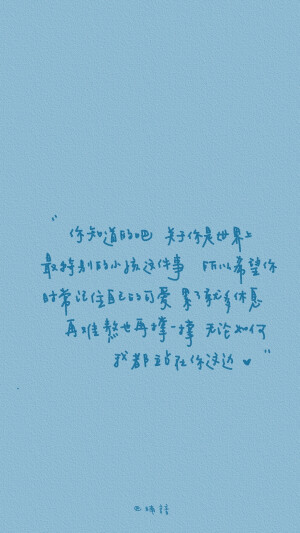 “
你知道的吧 关于你是世界上
最特别的小孩这件事 所以希望你
时常记住自己的可爱 累了就多休息
再难熬也再撑一撑 无论如何
我都站在你这边♥”